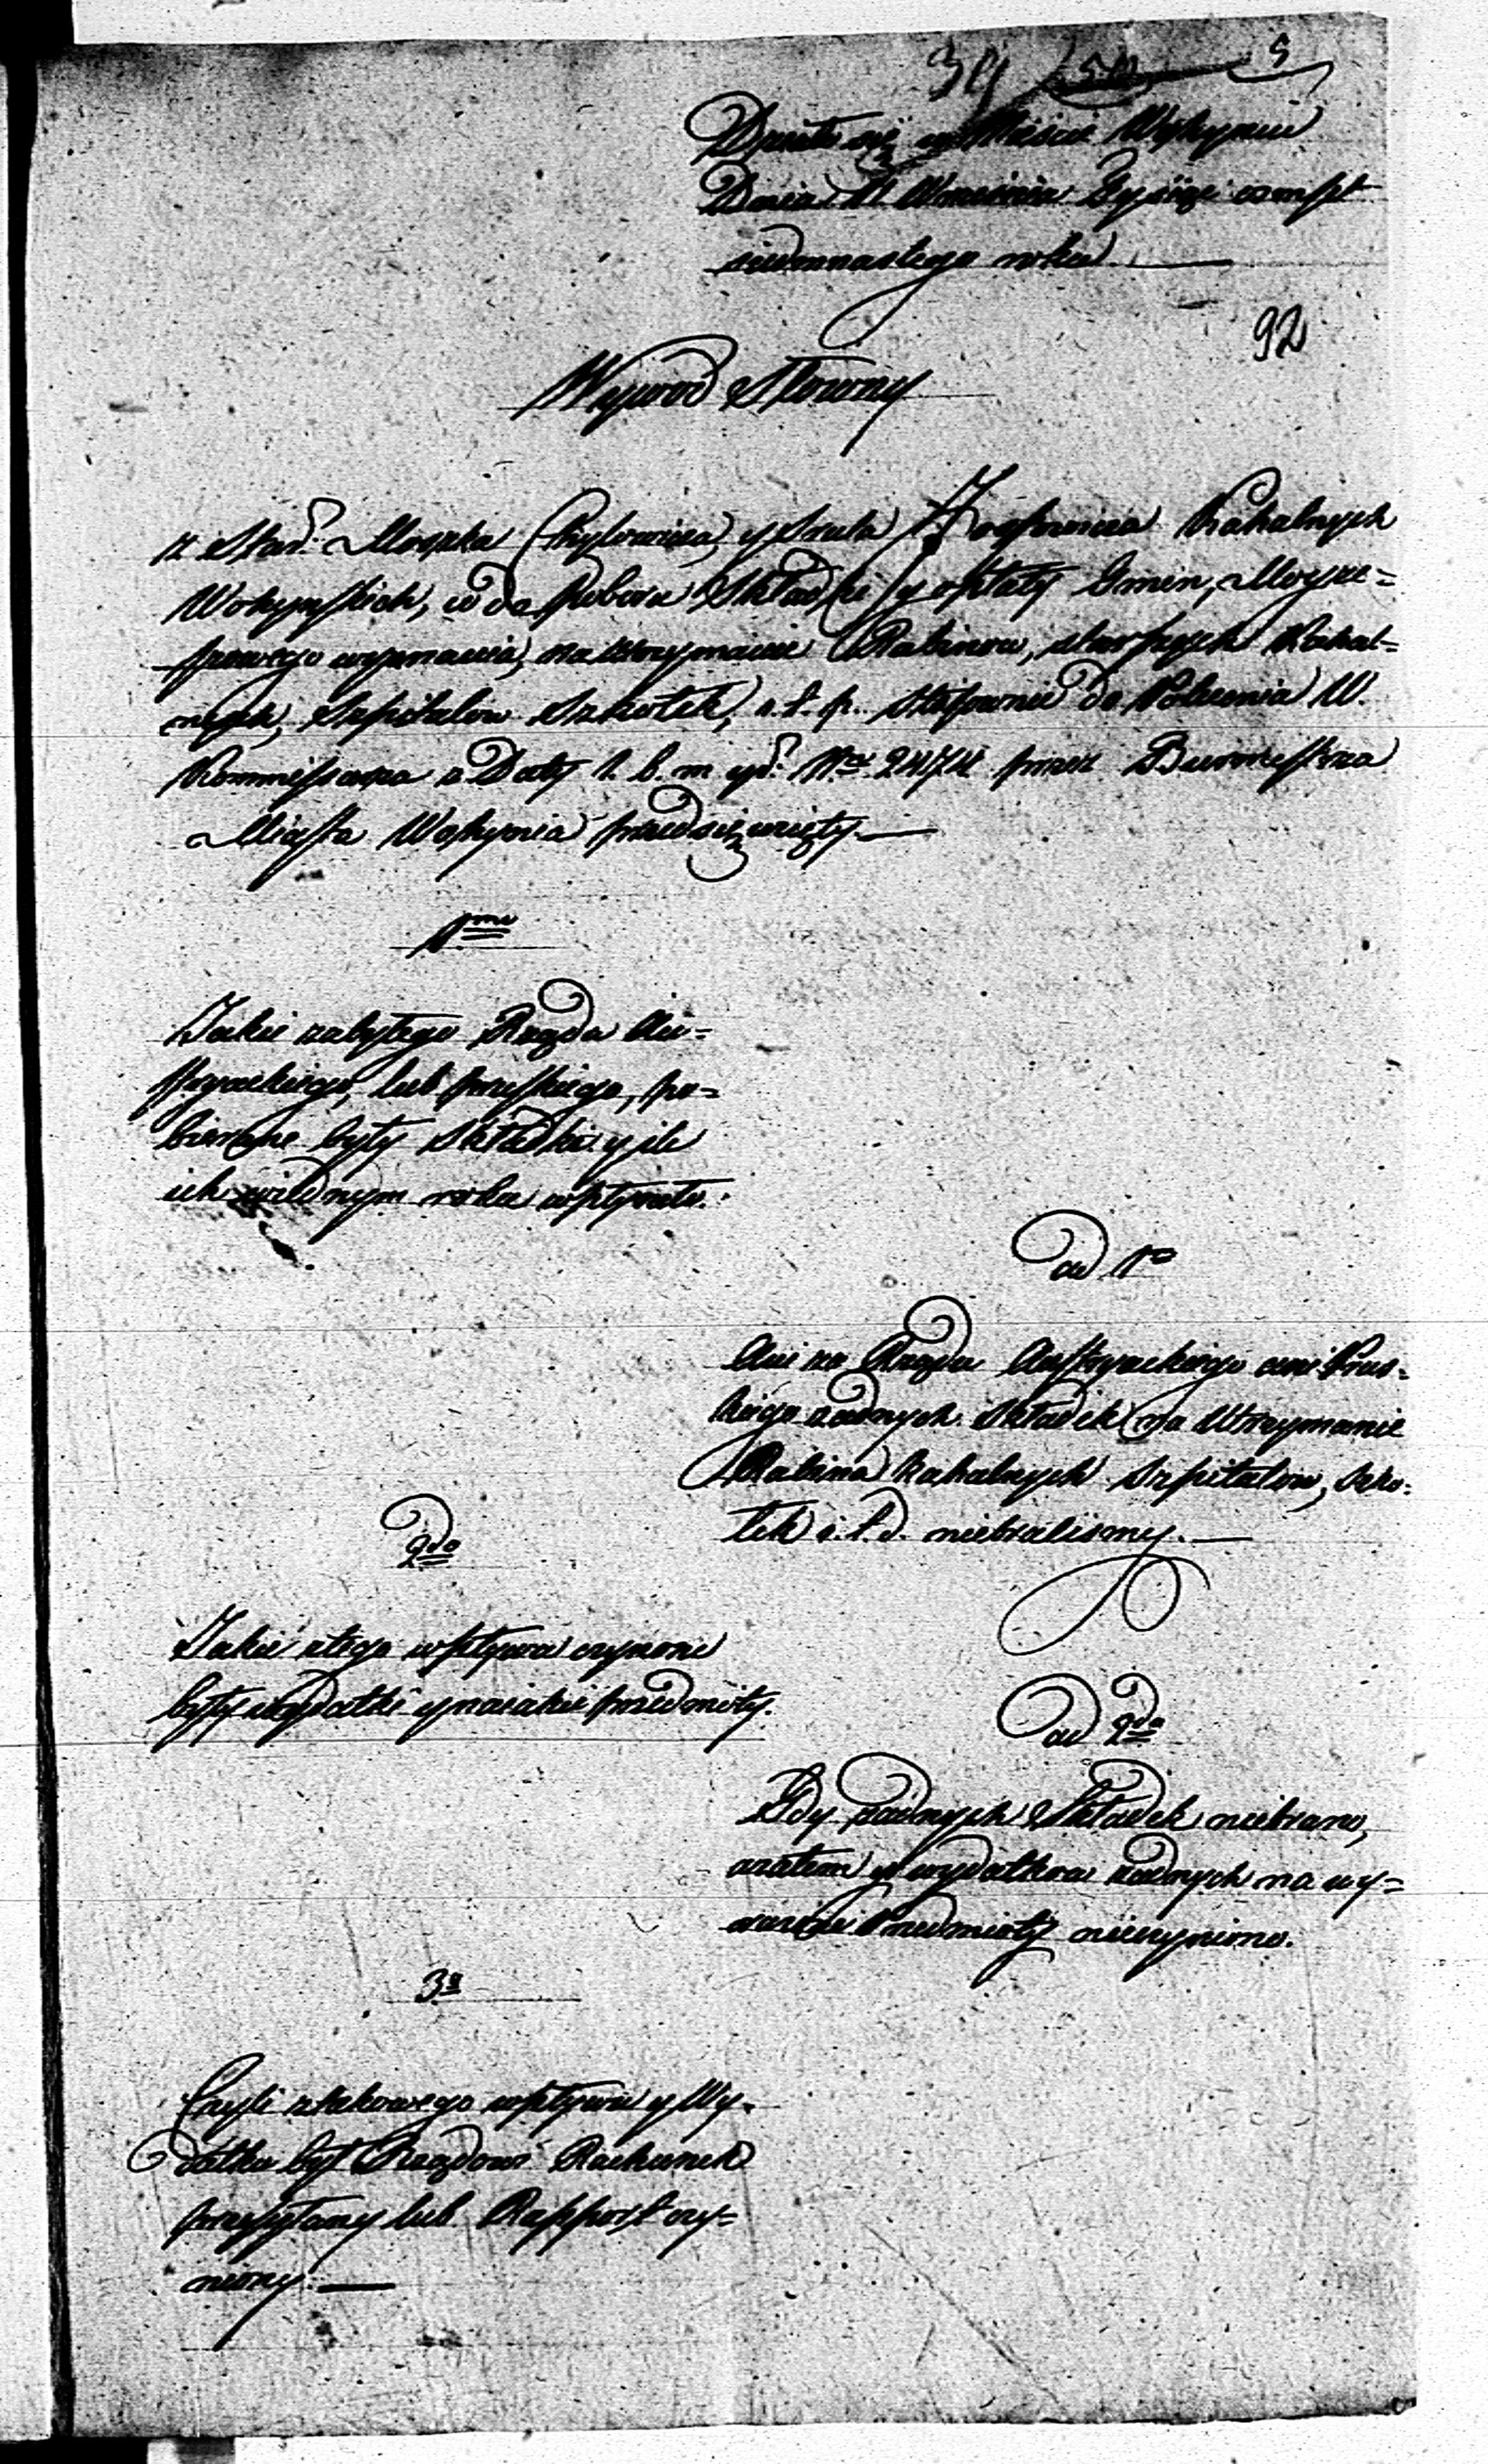 34 5
Działo się w Mieście Wohyniu
Dnia 11 Września Tysiąc ośmset
siedmnastego roku
92
Wywod Słowny
z Star. Moszka Chylowicza, y Srula Kahalnych
Wohyńskich, wdo poboru Składki y opłaty Gmin, Moyże=
szowego wyznania, na utrzymanie Rabinow, starszych Kahal=
nych, Szpitalow Szkołek, i. t. p. stosownie do Polecenia W.
Kommissarza z Daty 1. b. m. y r. Nro 2474 przez Burmistrza
Miasta Wohynia przedsięwzięty.
1mo
Jakie zabytego Rządu Au=
stryackiego, lub pruskiego, po=
bierane były Składki y ile
ich wiednym roku wpływało.
ad 1o
Ani za Rządu Austryackiego ani Prus=
kiego żadnych Składek na Utrzymanie
Rabina Kahalnych Szpitalow, Szko=
łek i. t. d. niebraliśmy.
2do
Jakie ztego wpływu czynione
były wydatki y naiakie przedmioty.
ad 2do
Gdy żadnych Składek niebrano,
azatem y wydatkow żadnych na wy=
rażone Przedmioty nieczyniono.
3o
Czyli ztakowego wpływu y Wy=
datku był Rządowi Rachunek
przesyłany lub Rapport czy=
niony.